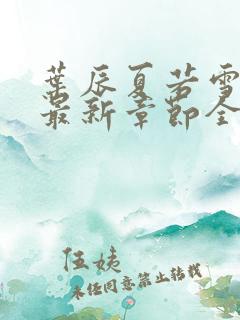 葉辰夏若雪
最新章節全
伍姨
未经同意禁止转载